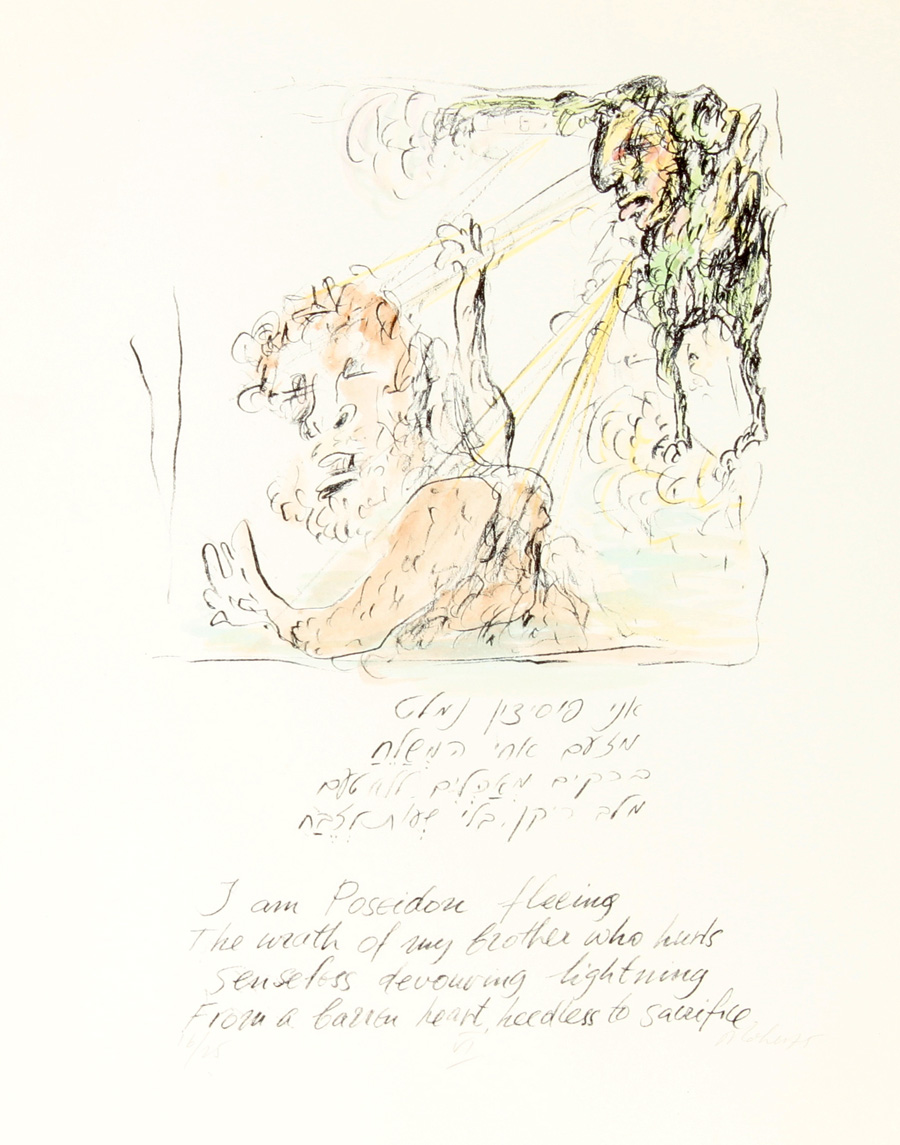 אני פוסידון נמלט
מזעם אחי המְשַלֵּחַ
ברקים מְאַכְּלִים ללא טעם
מלב ריקן, בלי שְׁעוֹת לְזֶבַח
I am Poseidon fleeing
The wrath of my brother who hurls
Senseless devouring lightning
From a barren heart, heedless to sacrifice